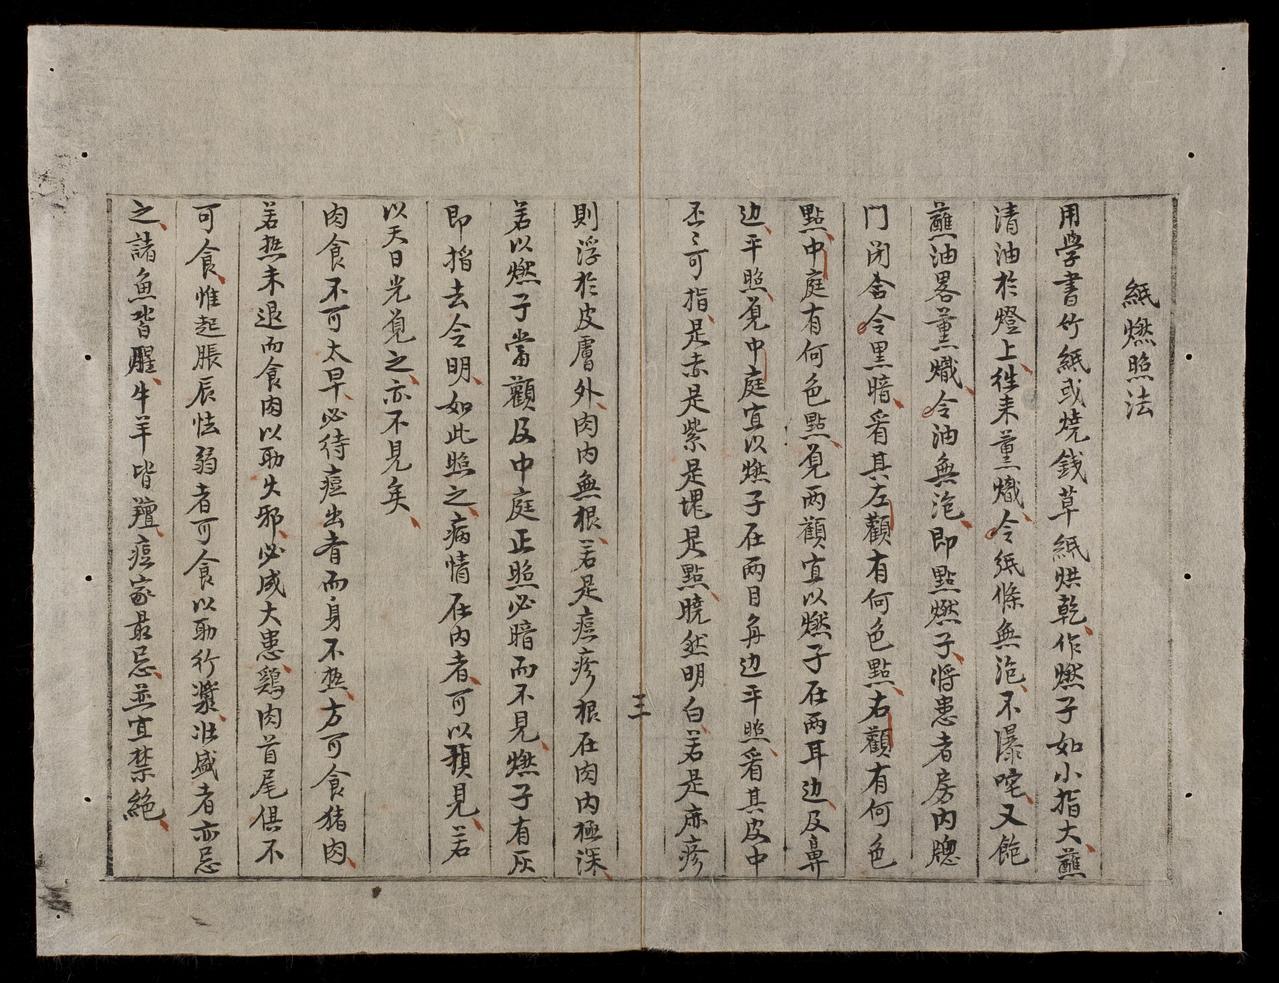 紙燃照法
用學書竹紙或燒銭草紙烘乾作燃子如小指大蘸
清油於燈上徃耒薰熾令紙條無泡不瀑咤又飽
蘸油畧薰熾令油無泡即點燃子將患者房內牕
门闭舍令黒暗看其左顴有何色點右顴有何色
點中庭有何色點覓两顴宜以燃子在两耳边及鼻
边平照覓中庭宜以燃子在两目角边平照看其皮中
歷〻可指是赤是紫是塊是點曉然明白若是麻疹
三
則浮於皮膚外肉内無根若是痘疹根在肉内極深
若以燃子當顴及中庭正照必暗而不見燃子有灰
即掐去令明如此照之病情在内者可以預見若
以天日光覓之亦不見矣
肉食不可太早必待痘出者而身不热方可食猪肉
若热未退而食肉以助火邪必成大患鷄肉首尾俱不
可食惟起脹辰怯弱者可食以助行漿壮盛者亦忌
之諸魚皆腥牛羊皆羶痘家最忌並宜禁絶